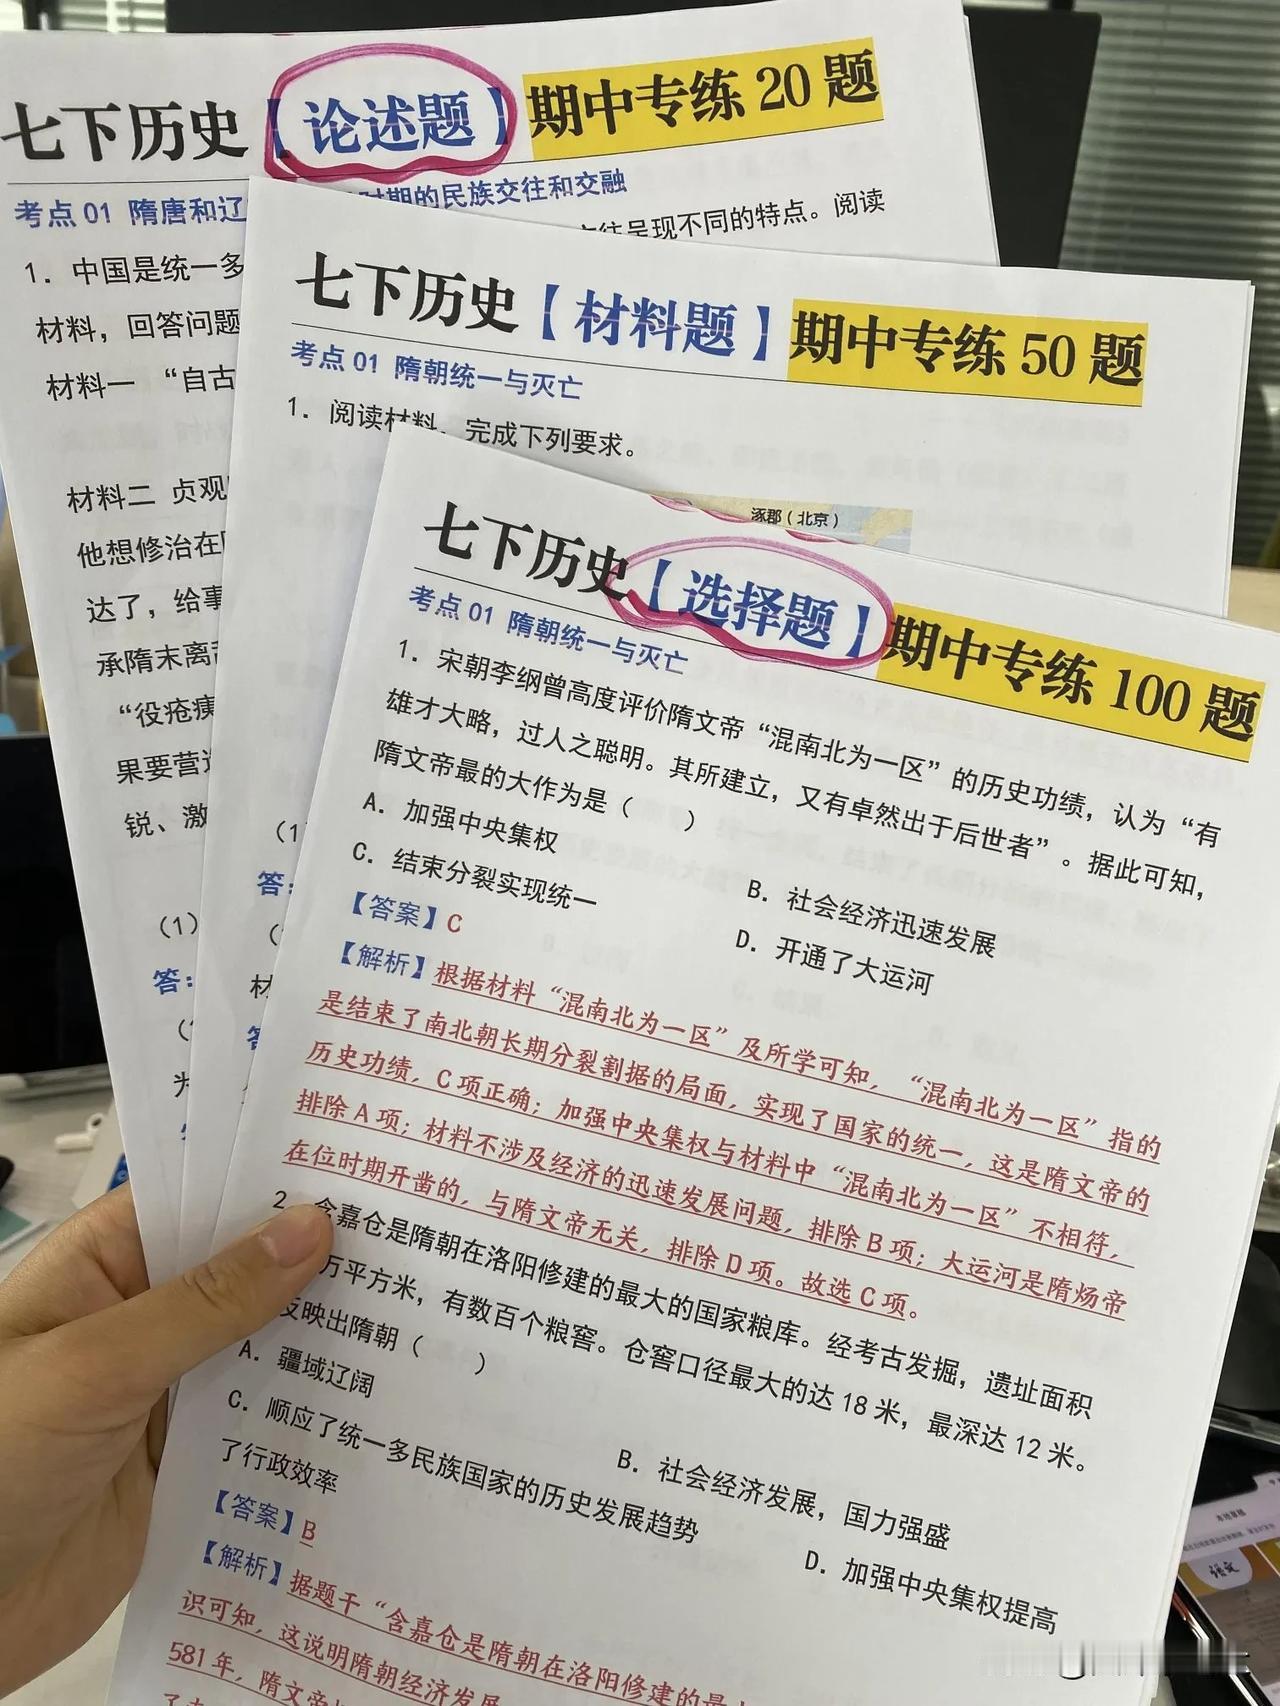 七下历史【论述题】期中专练20题
考点01 隋唐和辽
时期的民族交往和交融
1. 中国是统一多
呈现不同的特点。阅读
材料，回答问题
材料一 “自古
材料二 贞观
他想修治在
达了，给事
承隋末离
“役疮痍
果要营造
锐、激
(1)
答：
七下历史【材料题】期中专练50题
考点01 隋朝统一与灭亡
1. 阅读材料，完成下列要求。
涿郡（北京）
(1)
答：
材
答
七下历史【选择题】期中专练100题
考点01 隋朝统一与灭亡
1. 宋朝李纲曾高度评价隋文帝“混南北为一区”的历史功绩，认为“有
雄才大略，过人之聪明。其所建立，又有卓然出于后世者”。据此可知，
隋文帝最的大作为是（ ）
A. 加强中央集权
B. 社会经济迅速发展
C. 结束分裂实现统一
D. 开通了大运河
【答案】C
【解析】根据材料“混南北为一区”及所学可知，“混南北为一区”指的
是结束了南北朝长期分裂割据的局面，实现了国家的统一，这是隋文帝的
历史功绩，C项正确；加强中央集权与材料中“混南北为一区”不相符，
排除A项；材料不涉及经济的迅速发展问题，排除B项；大运河是隋炀帝
在位时期开凿的，与隋文帝无关，排除D项。故选C项。
2. 含嘉仓是隋朝在洛阳修建的最大的国家粮库。经考古发掘，遗址面积
万平方米，有数百个粮窖。仓窖口径最大的达18米，最深达12米。
反映出隋朝（ ）
A. 疆域辽阔
B. 社会经济发展，国力强盛
C. 顺应了统一多民族国家的历史发展趋势
D. 加强中央集权提高
了行政效率
【答案】B
【解析】据题干“含嘉仓是隋朝在洛阳修建的最
识可知，这说明隋朝经济发展
581年，隋文帝
语文